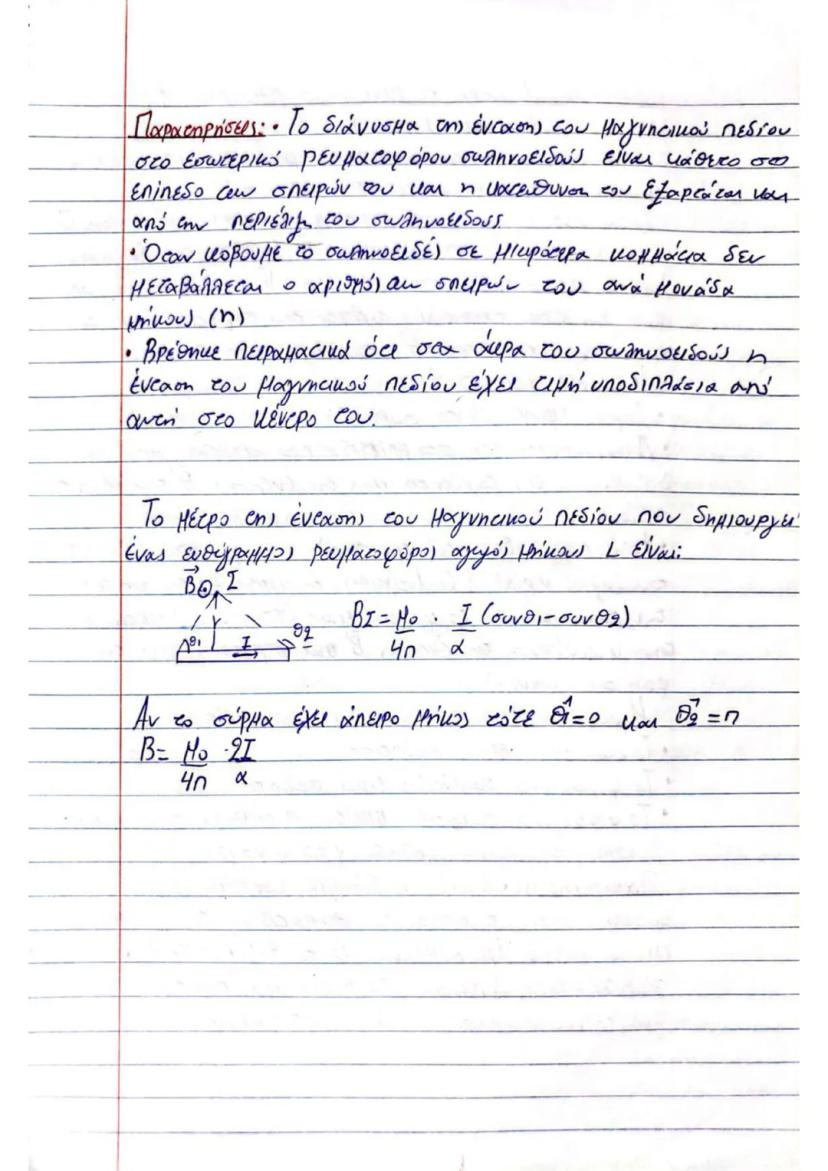 Παρατηρήσεις: • Το διάνυσμα της έντασης του μαγνητικού πεδίου
στο εσωτερικό ρευματοφόρου σωληνοειδούς είναι κάθετο στο
επίπεδο των σπειρών του και η κατεύθυνση του εξαρτάται και
από την περιέλιξη του σωληνοειδούς.
• Όταν κόβουμε το σωληνοειδές σε μικρότερα κομμάτια δεν
μεταβάλλεται ο αριθμός των σπειρών του ανά μονάδα
μήκους (n)
• Βρέθηκε πειραματικά ότι στα άκρα του σωληνοειδούς η
ένταση του μαγνητικού πεδίου έχει τιμή υποδιπλάσια από
αυτή στο κέντρο του.
Το μέτρο της έντασης του μαγνητικού πεδίου που δημιουργεί
ένας ευθύγραμμος ρευματοφόρος αγωγός μήκους L είναι:
B⃗ ⊙ I
θ1 I θ2
BI = μ0/4π · I/α (συνθ1-συνθ2)
Αν το σύρμα έχει άπειρο μήκος τότε θ⃗1=0 και θ⃗2=π
B= μ0/4π · 2I/α